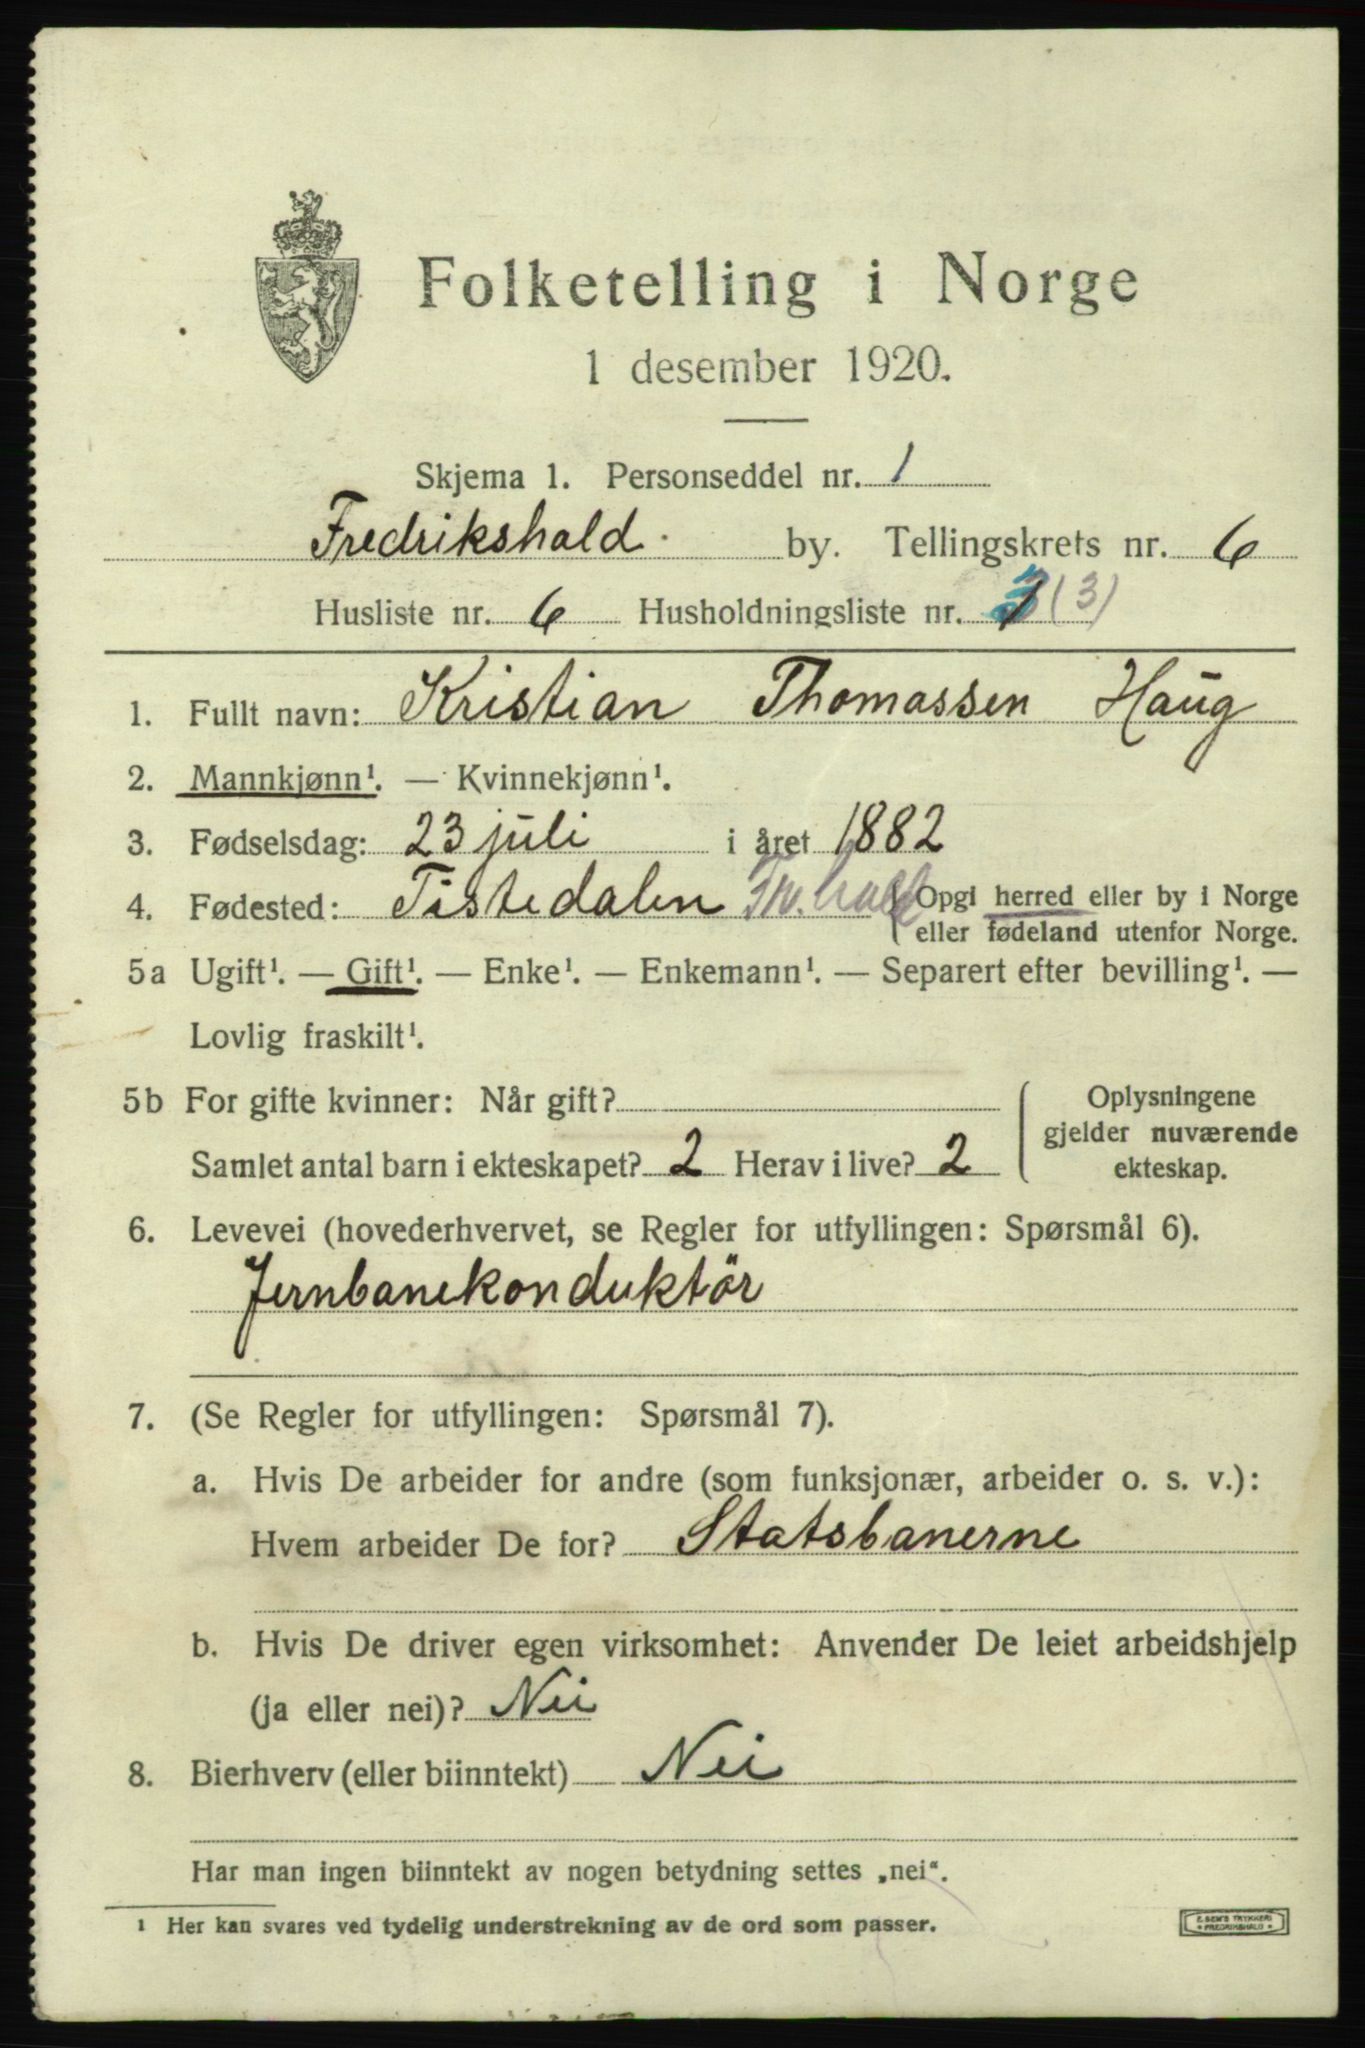 Folketelling i Norge
1 desember 1920.
Skjema 1. Personseddel nr. 1
Fredrikshald by. Tellingskrets nr. 6
Husliste nr. 6 Husholdningsliste nr. (3)
1. Fullt navn: Kristian Thomassen Haug
2. Mannkjønn¹. — Kvinnekjønn¹.
3. Fødselsdag: 23 juli i året 1882
4. Fødested: Tistedalen Fr.hald { Opgi herred eller by i Norge
eller fødeland utenfor Norge.
5a Ugift¹. — Gift¹. — Enke¹. — Enkemann¹. — Separert efter bevilling¹. —
Lovlig fraskilt¹.
5b For gifte kvinner: Når gift?
Samlet antal barn i ekteskapet? 2 Herav i live? 2
Oplysningene
gjelder nuværende
ekteskap.
6. Levevei (hovederhvervet, se Regler for utfyllingen: Spørsmål 6).
Jernbanekonduktör
7. (Se Regler for utfyllingen: Spørsmål 7).
a. Hvis De arbeider for andre (som funksjonær, arbeider o. s. v.):
Hvem arbeider De for? Statsbanerne
b. Hvis De driver egen virksomhet: Anvender De leiet arbeidshjelp
(ja eller nei)? Nei
8. Bierhverv (eller biinntekt) Nei
Har man ingen biinntekt av nogen betydning settes „nei“.
¹ Her kan svares ved tydelig understrekning av de ord som passer.
E. SEM'S TRYKKERI
FREDRIKSHALD